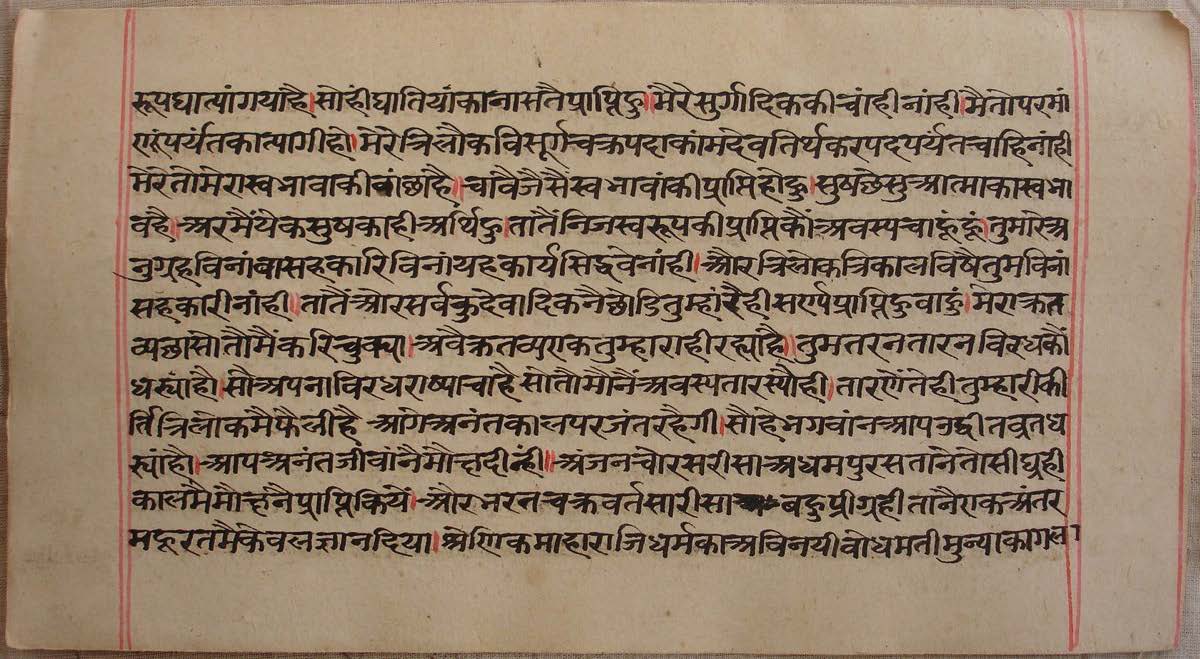 रूपघात्यांगयांहै।सोहीघातियांकानासतैप्राप्तिहु।मैरेसुर्गादिककीचांहीनांही।मैतोपरमां
णुंपर्यंतकात्यागीहौ।मेरेत्रिलौकविसूर्गचक्रपदाकांमदेवतिर्थंकरपदपर्यंतचाहिनांही
मेरेतोमेरास्वभावाकीवांछाहै॥चावैजैसैस्वभावांकीप्राप्तिहौहु।सुषछैसुआत्माकास्वभा
वहै।अरमैंयेकसुषकाहीअर्थिहु।तातैंनिजस्वरूपकीप्राप्तिकौंअवस्यचाहूंहूं।तुमारेअ
नुग्रहविनांवासहकारिविनांयहकार्यसिद्धवेनांही।औरत्रिलोकत्रिकालविषैतुमविनां
सहकारीनांही।तातैंऔरसर्वकुदेवादिकनैछोडितुम्हांरैहीसर्णप्राप्तिहुवाहुं।मेराक्रत
व्यछासोतौमैंकरिचुक्या।अवैक्रतव्यएकतुम्हाराहीरह्याहै।तुमतरनतारनविरधकौं
धस्यांहौ।सौअपनाविरधराष्याचाहैसोतौमौनैंअवस्यतारस्यौही।तारणैंतेहीतुम्हारीकी
र्त्तित्रिलोकमैफैलीहै।आगेअनंतकालपरजंतरहैगी।सौहेभगवांनआपअद्वीतव्रतध
स्यांहौ।आपअनंतजीवांनैमौक्षदीन्ही॥अंजनचौरसरीसाअधमपुरसतानैतोसीघ्रही
कालमैमौक्षनैप्राप्तिकियै।औरभरतचक्रवर्तसारीसाबहुप्रीग्रहीतानैएकअंतर
महूरतमैकेवलज्ञानदिया।श्रेणिकमाहाराजिधर्मकाअविनयीवोधमतीमुन्याकागला